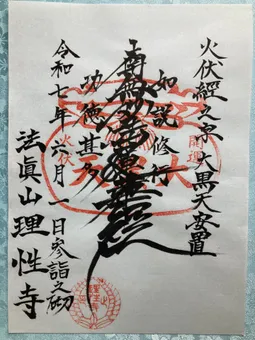 火伏経之寺 大黒天安置
如説修行
南無妙法蓮華経
功徳甚多
令和七年六月一日参詣之砌
法眞山理性寺
開運
火伏